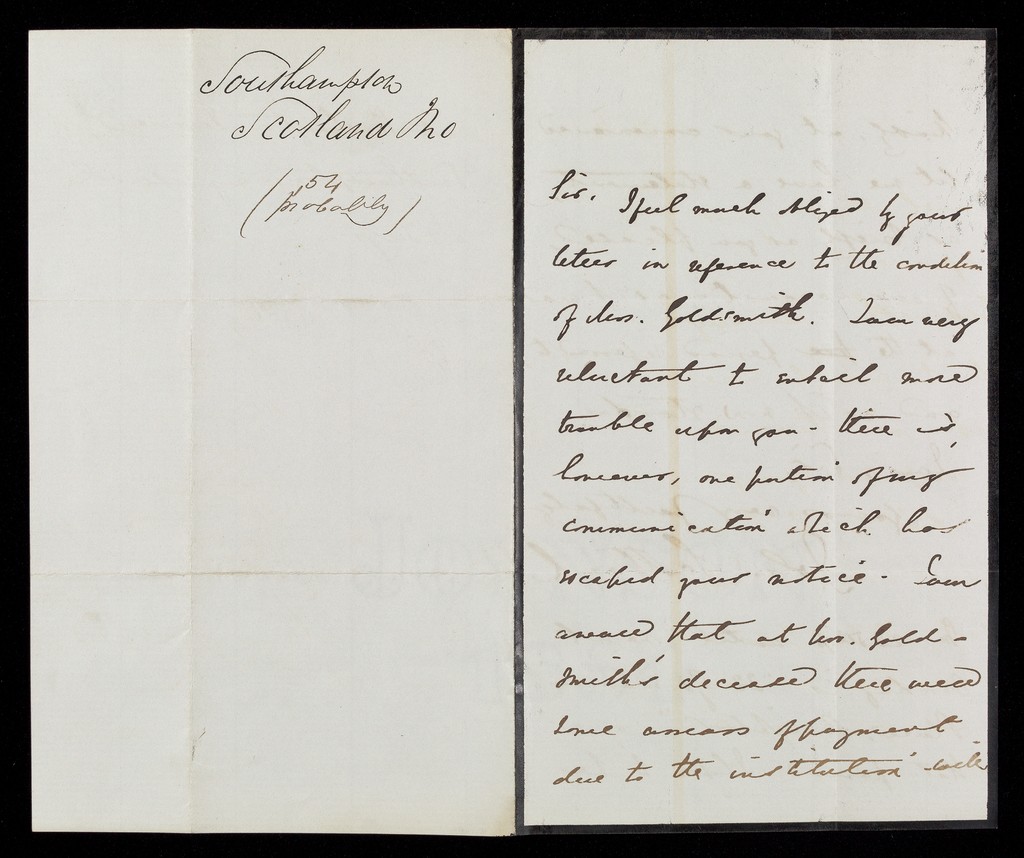 Southampton
Scotland
(54
probably)
Sir. I feel much obliged by your
letter in reference to the condition
of Mrs. Goldsmith. I am very
reluctant to entail more
trouble upon you - there is,
however, one portion of my
communication which has
escaped your notice. I am
aware, that at Mrs. Gold-
smith's decease there were
some arrears of payment
due to the institution with